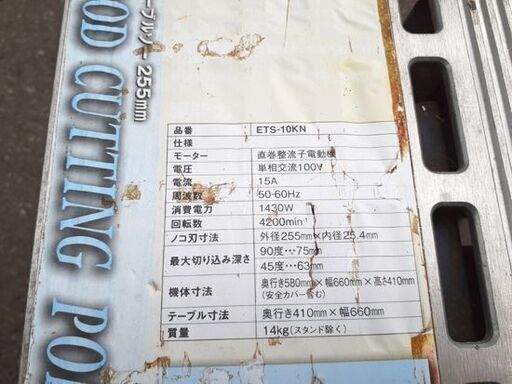 OOD CUTTING PO
ーブルソー 255mm
品番 ETS-10KN
仕様
モーター 直巻整流子電動機
電圧 単相交流100V
電流 15A
周波数 50-60Hz
消費電力 1430W
回転数 4200min⁻¹
ノコ刃寸法 外径255mm×内径25.4mm
最大切り込み深さ 90度…75mm
45度…63mm
機体寸法 奥行き580mm×幅660mm×高さ410mm
(安全カバー含む)
テーブル寸法 奥行き410mm×幅660mm
質量 14kg(スタンド除く)